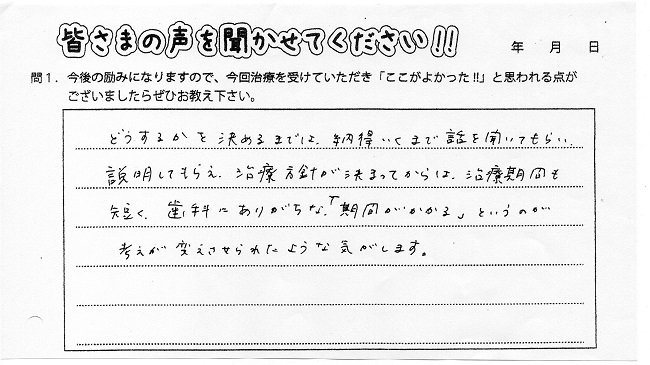 皆さまの声を聞かせてください!!
年 月 日
問1. 今後の励みになりますので、今回治療を受けていただき「ここがよかった!!」と思われる点が
ございましたらぜひお教え下さい。
どうするかを決めるまでは、納得いくまで話を聞いてもらい、
説明してもらえ、治療方針が決まってからは、治療期間も
短く、歯科にありがちな、「期間がかかる」というのが
考えが変えさせられたような気がします。